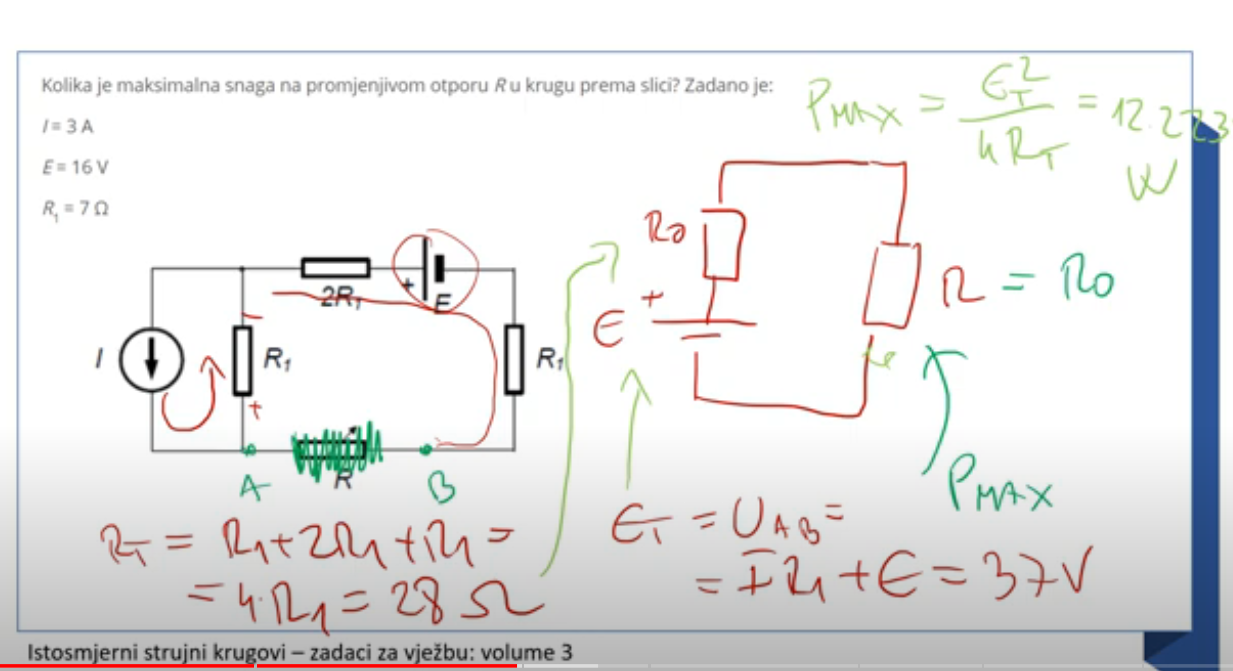 Kolika je maksimalna snaga na promjenjivom otporu R u krugu prema slici? Zadano je:
I = 3 A
E = 16 V
R₁ = 7 Ω
P_MAX = E_T² / 4R_T = 12.223
W
I
R₁
2R₁
+
E
R₁
+
R
A
B
R₀
E
+
R = R₀
P_MAX
R_T = R₁+2R₁+R₁ =
= 4·R₁ = 28 Ω
E_T = U_AB =
= I R₁ + E = 37 V
Istosmjerni strujni krugovi – zadaci za vježbu: volume 3